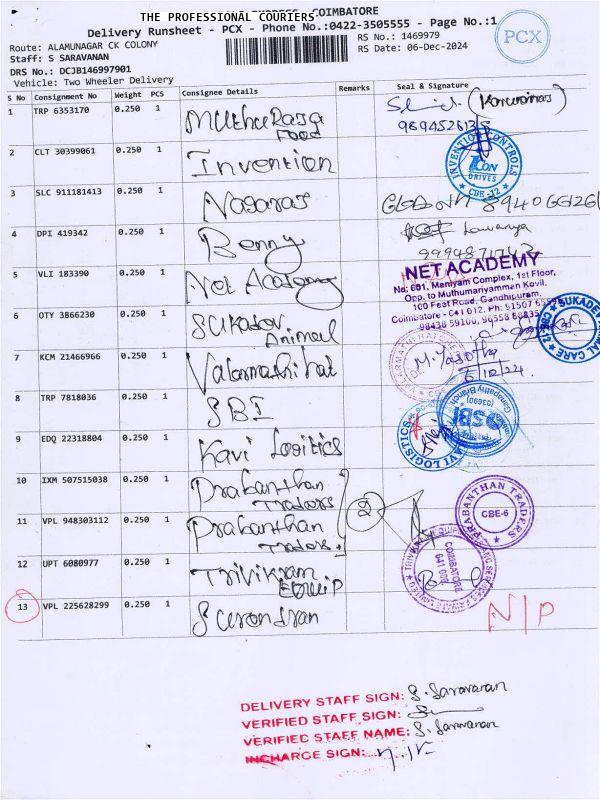 THE PROFESSIONAL COURIERS
COIMBATORE
Delivery Runsheet - PCX - Phone No.:0422-3505555 - Page No.:1
PCX
Route: ALAMUNAGAR CK COLONY
RS No.: 1469979
Staff: S SARAVANAN
RS Date: 06-Dec-2024
DRS No.: DCJB146997901
Vehicle: Two Wheeler Delivery
S No Consignment No Weight PCS Consignee Details Remarks Seal & Signature
1 TRP 6353170 0.250 1 MuthuRasa
Food
2 CLT 30399061 0.250 1 Invention
INVENTION CONTROLS
ICON
DRIVES
CBE-12
3 SLC 911181413 0.250 1 Nagaras
4 DPI 419342 0.250 1 Benny
Lavanya
5 VLI 183390 0.250 1 Net Academy
NET ACADEMY
No: 601, Maniyam Complex, 1st Floor,
Opp. to Muthumariyamman Kovil,
100 Feet Road, Gandhipuram,
6 OTY 3866230 0.250 1 Sukadev
Animal
7 KCM 21466966 0.250 1 Valarmathi hat
6/12/24
8 TRP 7818036 0.250 1 SBI
SBI
9 EDQ 22318804 0.250 1 Kavi Logitics
KAVI LOGISTICS
10 IXM 507515038 0.250 1 Prabanthan
Traders
11 VPL 948303112 0.250 1 Prabanthan
Traders
2
PRABANTHAN TRADERS
CBE-6
12 UPT 6080977 0.250 1 Trivikram
Equip
COIMBATORE
13 VPL 225628299 0.250 1 Surendran
N/P
DELIVERY STAFF SIGN: S. Saravanan
VERIFIED STAFF SIGN:
VERIFIED STAFF NAME: S. Saravanan
INCHARGE SIGN: